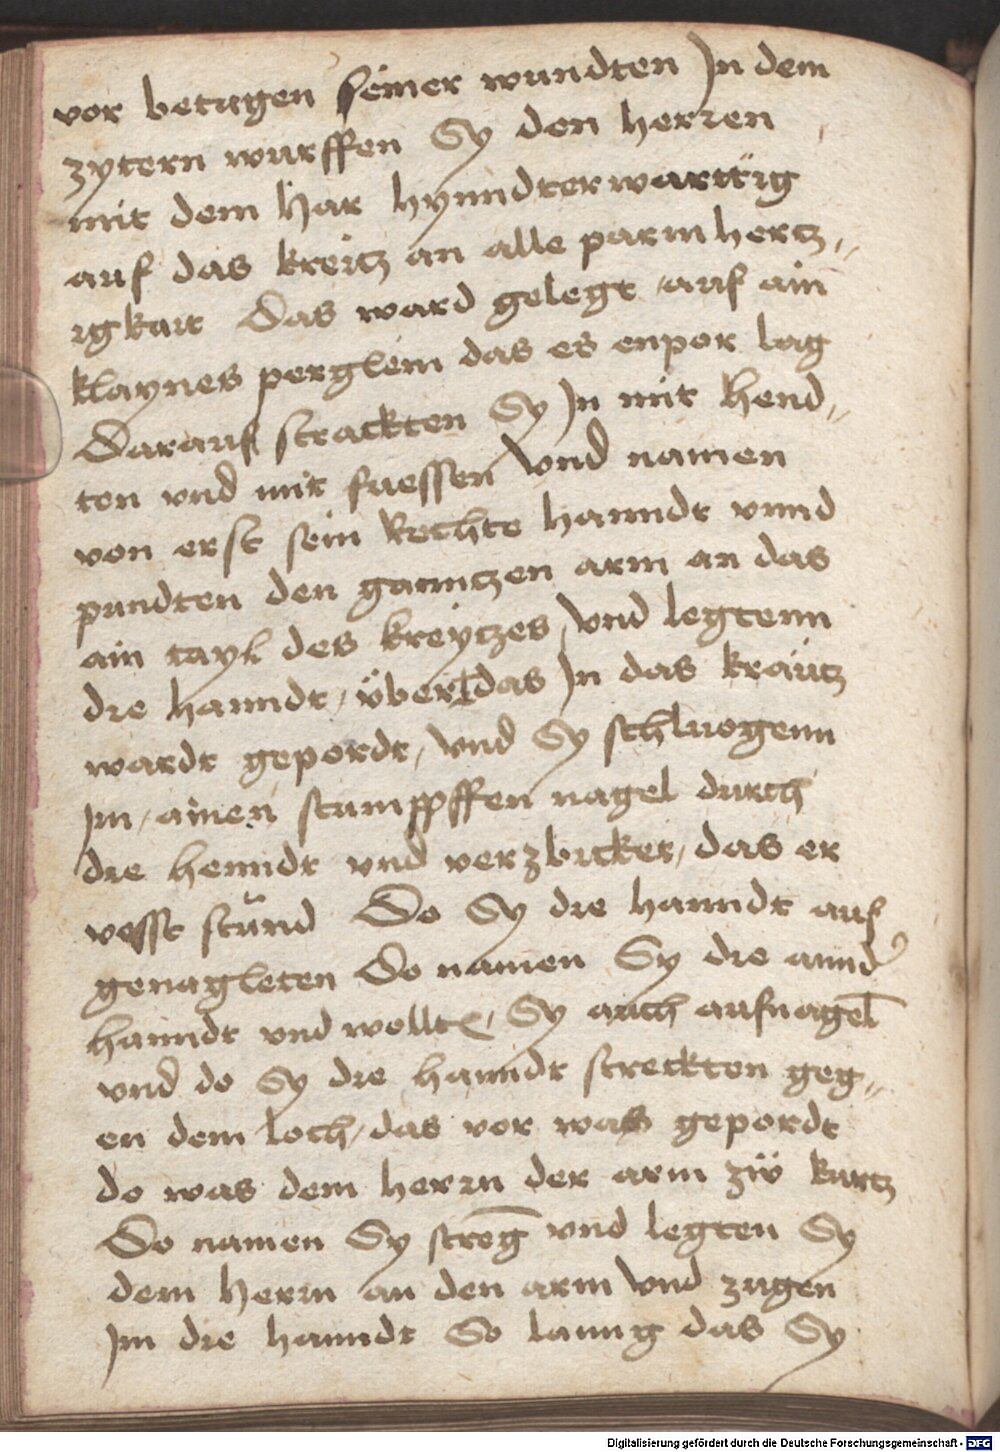 vor betagen seiner wundten Jn dem
zytern wurffen Sy den herren
mit dem Har hynndterwarttig
auf das kreitz an alle parmhertz,,
igkait Das ward gelegt auf ain
klaynes perglem das es enpor lag
Darauf strackten Sy Jn mit Hend,,
ten vnd mit fuessen Vnd namen
von erst sein Rechte hanndt vnnd
pundten den ganntzen arm an das
ain tayl des kreytzes, Vnd legtenn
die hanndt, über das Jn das kraütz
wardt gepordt, Vnd Sy schluogenn
Jm, ainen stumpffen nagel durch
die henndt vnd verzbicket, das er
vesst stŭnd Do Sy die hanndt auf
genagleten Do namen Sy die annd
hanndt vnd wollt, Sy auch aufnagel̄
vnd do Sy die hanndt streckten geg,,
en dem loch, das vor was gepordt
do was dem herrn der arm zü kurtz
Do namen Sy streḡ vnd legten Sy
dem Herrn an den arm Vnd zugen
Jm die hanndt So lanng das Sy
Digitalisierung gefördert durch die Deutsche Forschungsgemeinschaft - DFG